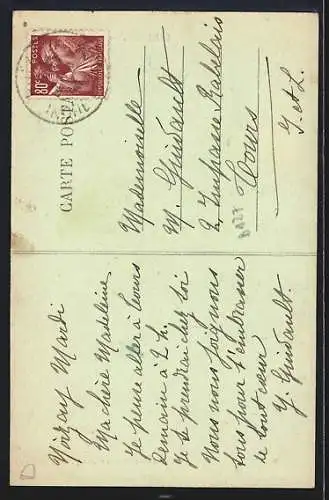 CARTE POSTALE
POSTES
80c
Mademoiselle
M. Guidault
2, Impasse Rabelais
Tours
I. et L.
Mardi
Ma chère Madeleine
Je pense aller à Tours
Demain à 2 h.
Je te prendrai chez toi
Nous nous joignons
tous pour t'embrasser
de tout cœur
Y. Guidault.